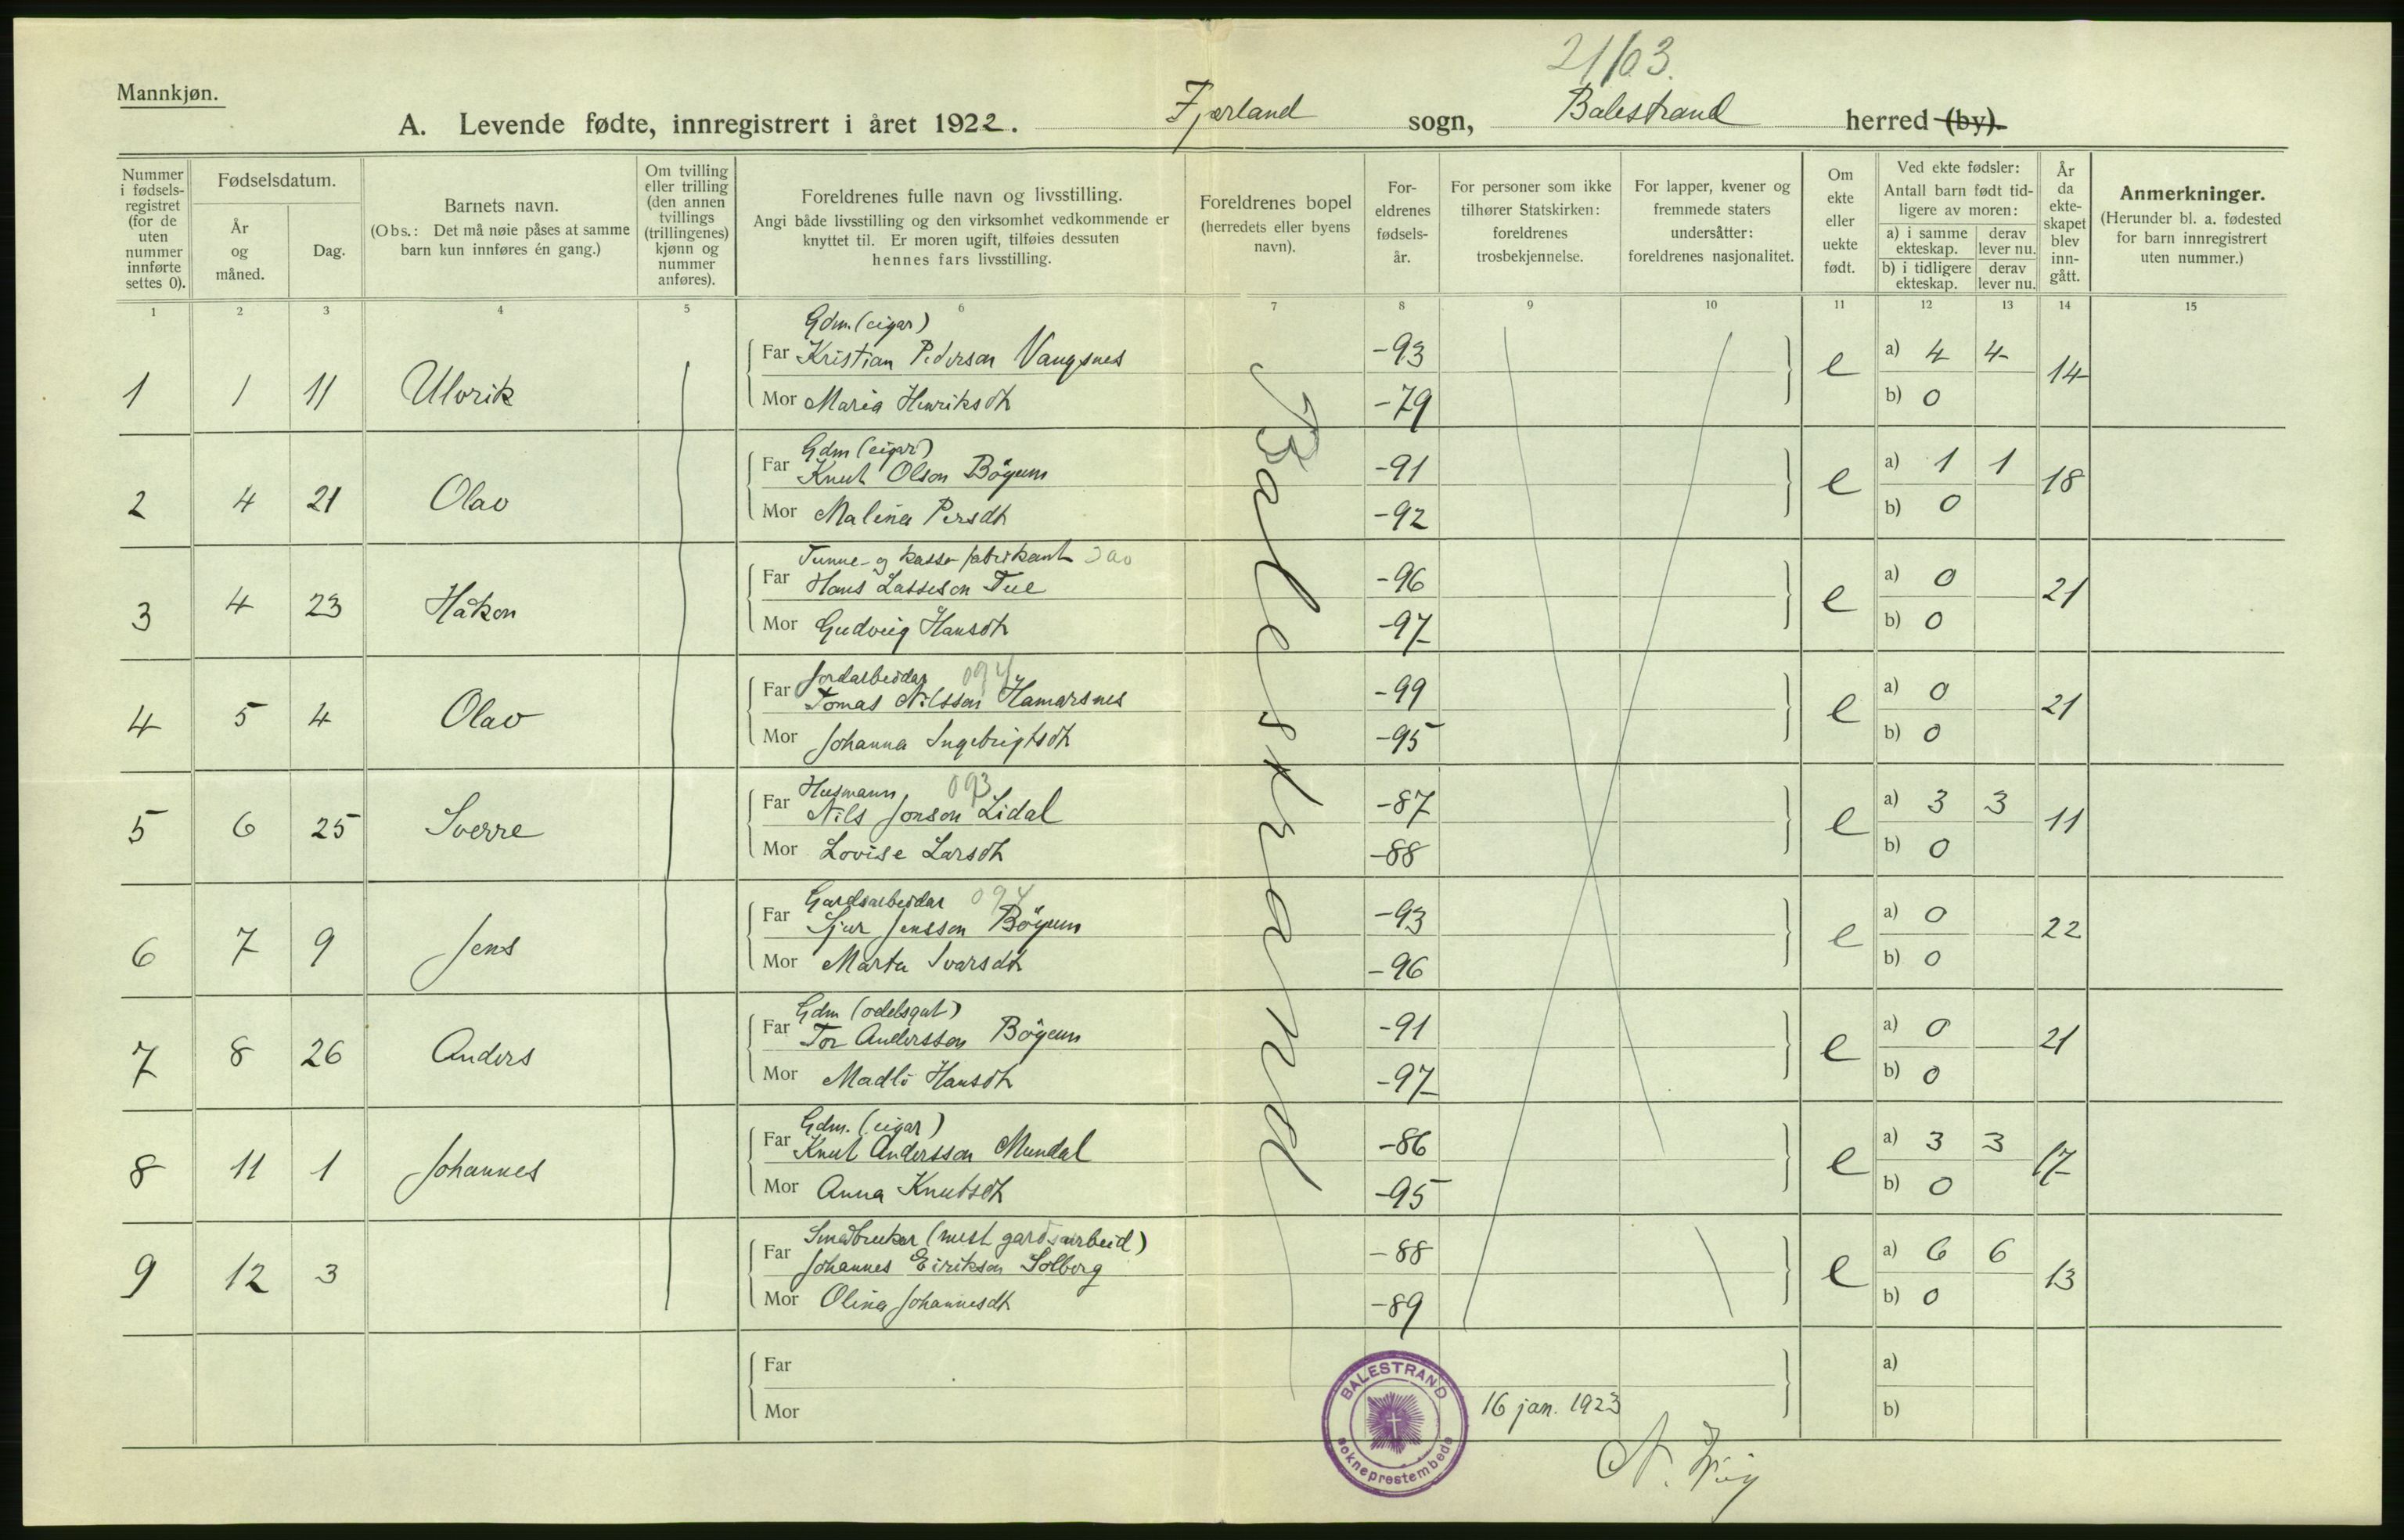 21/03.
Mannkjøn.
A. Levende fødte, innregistrert i året 1922. Fjærland sogn, Balestrand herred (by).
Nummer i fødsels-registret (for de uten nummer innførte settes 0).
Fødselsdatum.
År og måned.
Dag.
Barnets navn.
(Obs.: Det må nøie påses at samme barn kun innføres én gang.)
Om tvilling eller trilling (den annen tvillings (trillingenes) kjønn og nummer anføres).
Foreldrenes fulle navn og livsstilling.
Angi både livsstilling og den virksomhet vedkommende er knyttet til. Er moren ugift, tilføies dessuten hennes fars livsstilling.
Foreldrenes bopel (herredets eller byens navn).
For-eldrenes fødsels-år.
For personer som ikke tilhører Statskirken: foreldrenes trosbekjennelse.
For lapper, kvener og fremmede staters undersåtter: foreldrenes nasjonalitet.
Om ekte eller uekte født.
Ved ekte fødsler:
Antall barn født tid-ligere av moren:
a) i samme ekteskap. derav lever nu.
b) i tidligere ekteskap. derav lever nu.
År da ekte-skapet blev inn-gått.
Anmerkninger.
(Herunder bl. a. fødested for barn innregistrert uten nummer.)
1 2 3 4 5 6 7 8 9 10 11 12 13 14 15
Gdm. (eigar)
1 1 11 Ulvrik Far Kristian Pederson Vangsnes -93 e a) 4 4 14
Mor Maria Henriksdt -79 b) 0
Balestrand
Gdm (eigar)
2 4 21 Olav Far Knut Olson Bøyum -91 e a) 1 1 18
Mor Malina Persdt -92 b) 0
Tunne- og kassefabrikant
3 4 23 Håkon Far Hans Lasseson Tue -96 e a) 0 21
Mor Gudveig Hansdt -97 b) 0
Jordarbeidar 094
4 5 4 Olav Far Tomas Nilsson Hamarsnes -99 e a) 0 21
Mor Johanna Ingebrigtsdt -95 b) 0
Husmann 093
5 6 25 Sverre Far Nils Jonson Lidal -87 e a) 3 3 11
Mor Lovise Larsdt -88 b) 0
Gardsarbeidar 094
6 7 9 Jens Far Sjur Jensson Bøyum -93 e a) 0 22
Mor Marta Ivarsdt -96 b) 0
Gdm (odelsgut)
7 8 26 Anders Far Tor Andersson Bøyum -91 e a) 0 21
Mor Madli Hansdt -97 b) 0
Gdm. (eigar)
8 11 1 Johannes Far Knut Andersson Mundal -86 e a) 3 3 17
Mor Anna Knutsdt -95 b) 0
Småbrukar (mest gardsarbeid)
9 12 3 Far Johannes Eirikson Solberg -88 e a) 6 6 13
Mor Olina Johannesdt -89 b) 0
Far a)
Mor b)
BALESTRAND
sokneprestembede
16 jan. 1923